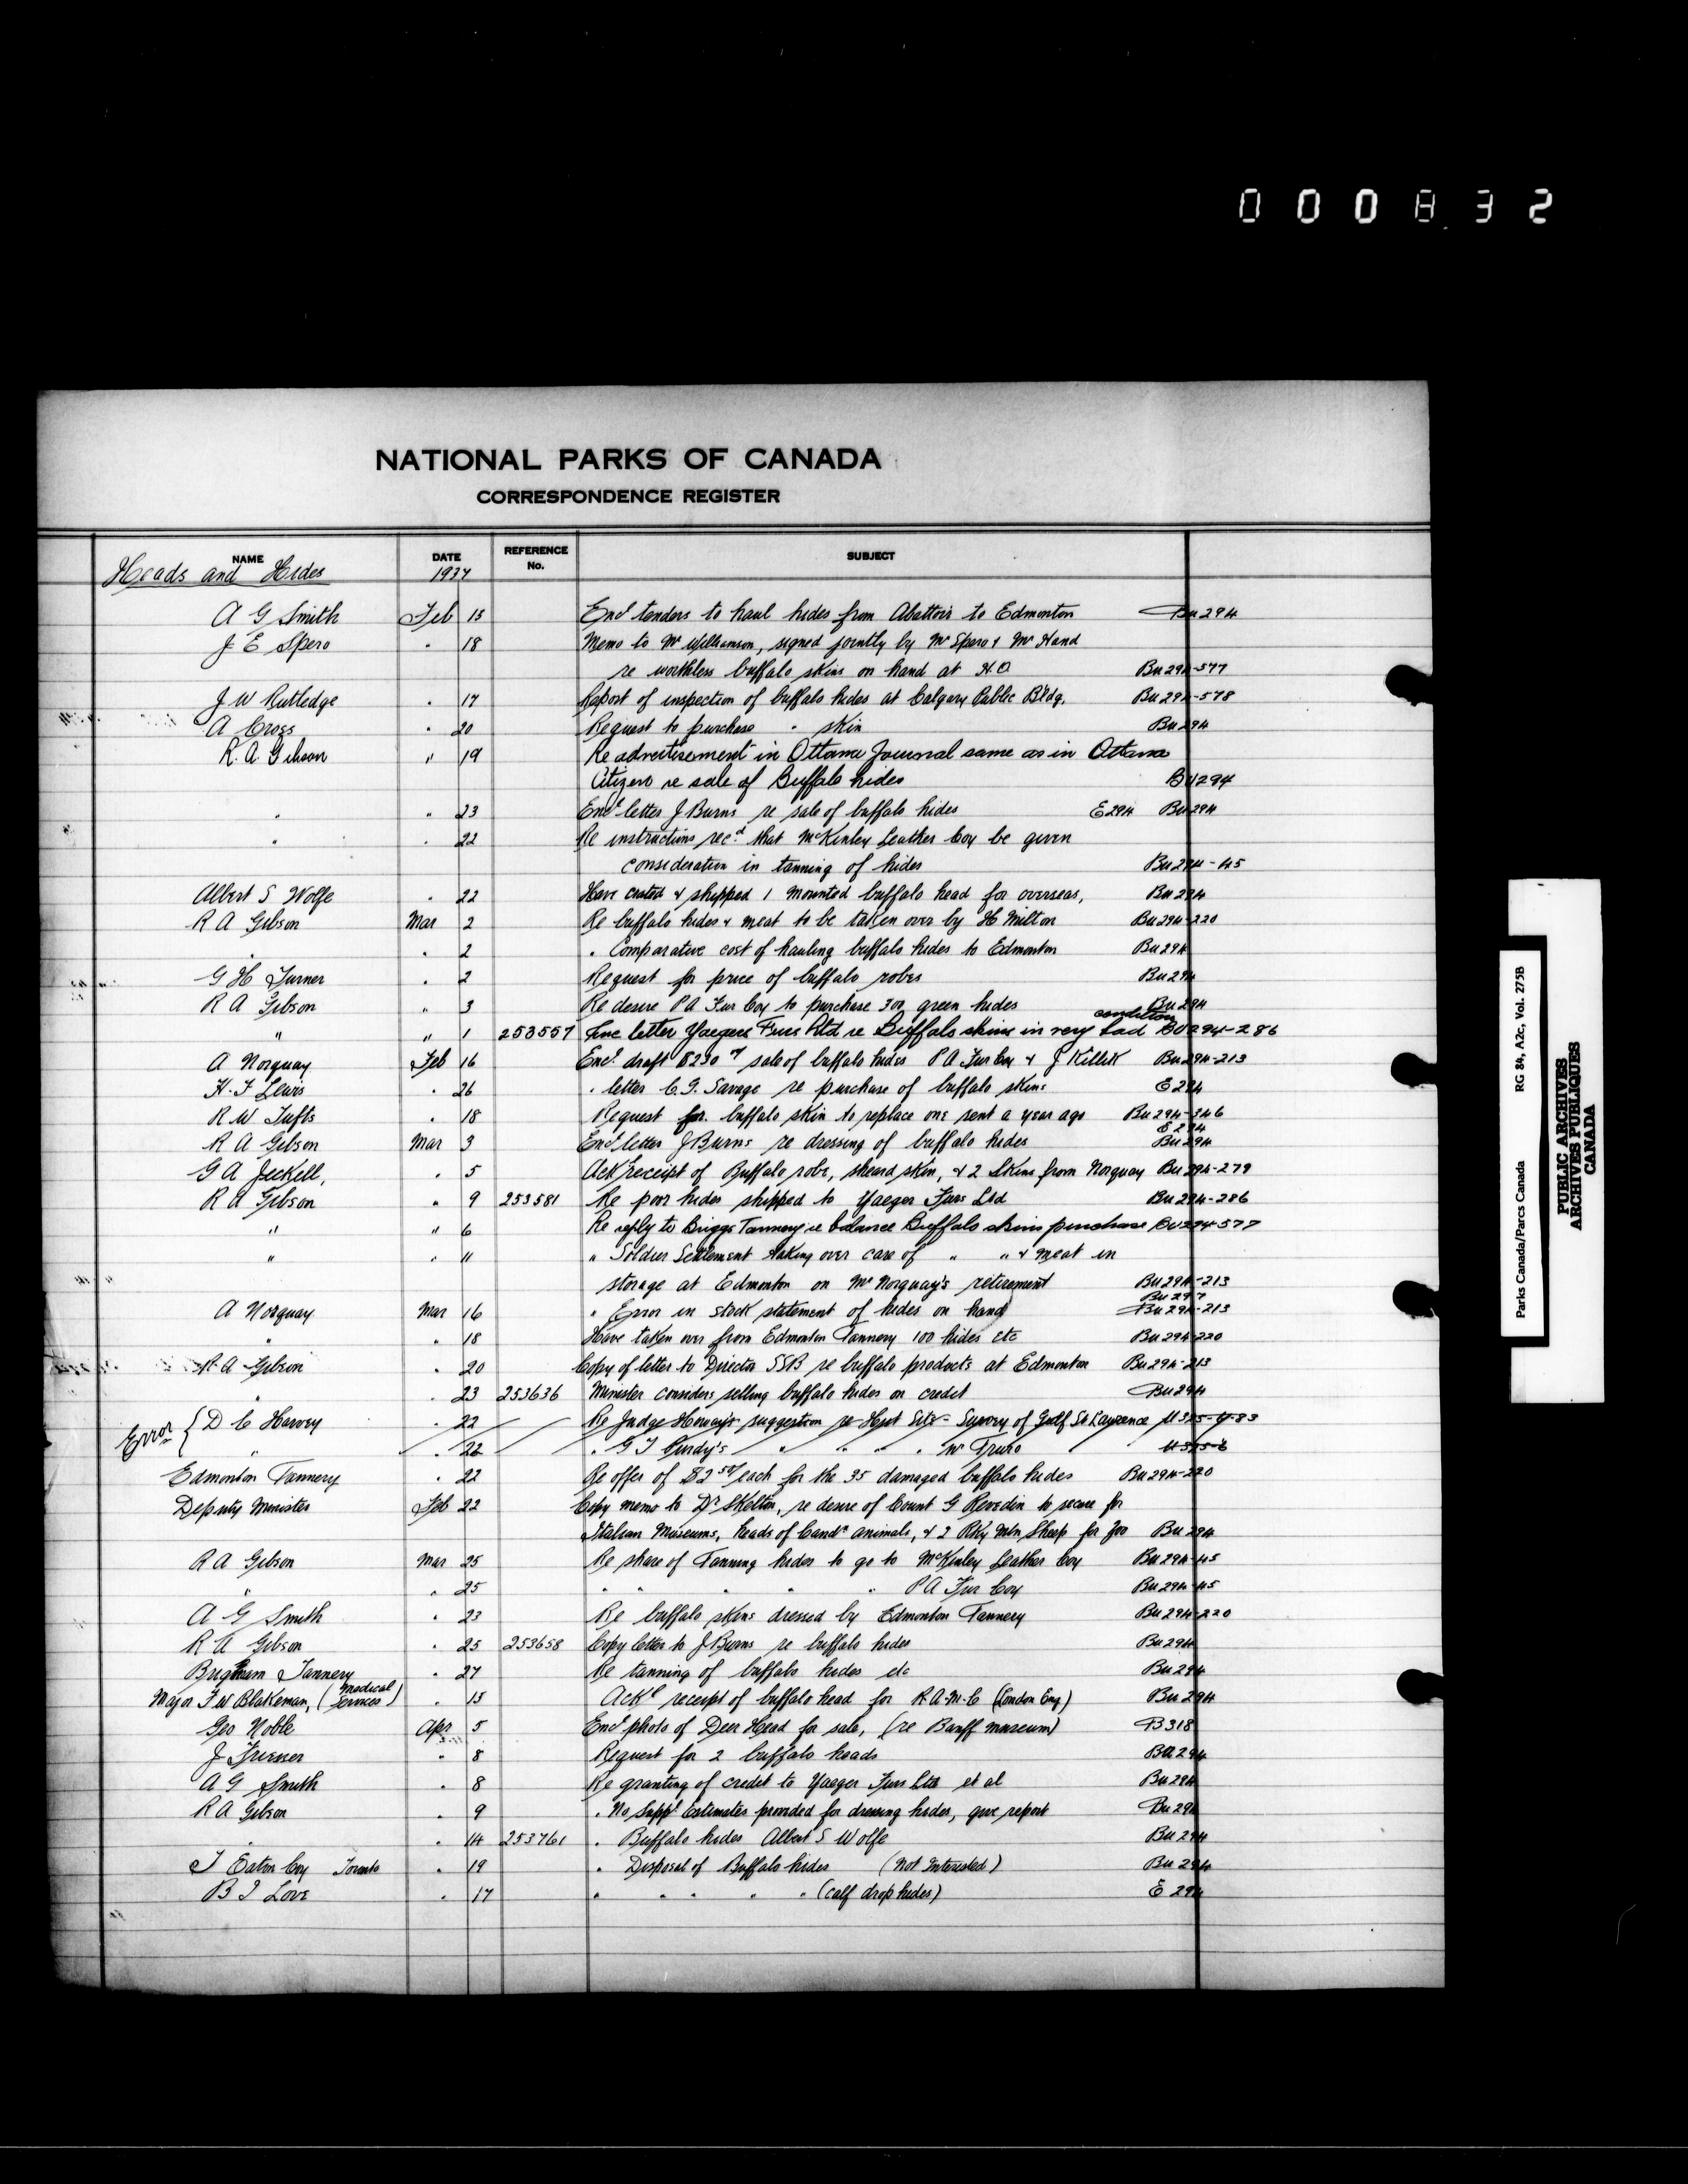 000832
NATIONAL PARKS OF CANADA
CORRESPONDENCE REGISTER
NAME DATE REFERENCE No. SUBJECT
Heads and Hides 1937
A G Smith Feb 15 Encl tenders to haul hides from Abattoir to Edmonton Bu 294
J E Spero " 18 Memo to Mr Williamson, signed jointly by Mr Spero & Mr Hand
re worthless buffalo skins on hand at H.O. Bu 294-577
J W Rutledge " 17 Report of inspection of buffalo hides at Calgary Public Bldg. Bu 294-578
A Cross " 20 Request to purchase " skin Bu 294
R. A. Gibson " 19 Re advertisement in Ottawa Journal same as in Ottawa
Citizen re sale of Buffalo hides BU294
" " 23 Encl letter J Burns re sale of buffalo hides E294 Bu 294
" " 22 Re instructions rec'd that McKinley Leather Coy be given
consideration in tanning of hides Bu 294-45
Albert S Wolfe " 22 Have crated & shipped 1 mounted buffalo head for overseas, Bu 294
R A Gibson Mar 2 Re buffalo hides & meat to be taken over by H Milton Bu 294-220
" " 2 " Comparative cost of hauling buffalo hides to Edmonton Bu 294
G H Turner " 2 Request for price of buffalo robes Bu 294
R A Gibson " 3 Re desire P A Fur Coy to purchase 300 green hides Bu 294
" " 1 253557 Enc letter Yaegers Furs Ltd re Buffalo skins in very bad condition BU294-286
A Norquay Feb 16 Encl draft $230 sale of buffalo hides P A Fur Coy & J Killick Bu 294-213
H. F Lewis " 26 " letter C. G. Savage re purchase of buffalo skins E 294
R W Tufts " 18 Request for buffalo skin to replace one sent a year ago Bu 294-346
E 294
R A Gibson Mar 3 Encl letter J Burns re dressing of buffalo hides Bu 294
G A Jeckell, " 5 Ack receipt of Buffalo robe, skin, & 2 skins from Norquay Bu 294-279
R A Gibson " 9 253581 Re poor hides shipped to Yaeger Furs Ltd Bu 294-286
" " 6 Re reply to Briggs Tannery re balance Buffalo skins purchase BU294-577
" " 11 " Soldier Settlement taking over care of " " & meat in
storage at Edmonton on Mr Norquay's retirement Bu 294-213
Bu 297
A Norquay Mar 16 " Error in stock statement of hides on hand Bu 294-213
" " 18 Have taken over from Edmonton Tannery 100 hides etc Bu 294-220
R. A Gibson " 20 Copy of letter to Director SSB re buffalo products at Edmonton Bu 294-213
" " 23 253636 Minister considers selling buffalo hides on credit Bu 294
Error { D C Harvey " 22 Re Judge Howay's suggestion re Hist Site - Survey of Gulf St Lawrence U325-4-83
" " 22 " G T Purdy's " " " " Mr Truro
Edmonton Tannery " 22 Re offer of $2 50/ each for the 35 damaged buffalo hides Bu 294-220
Deputy Minister Feb 22 Copy memo to Dr Skelton, re desire of Count G Revedin to secure for
Italian Museums, heads of Cand'n animals, & 2 Rky Mtn Sheep for Zoo Bu 294
R A Gibson Mar 25 Re share of Tanning hides to go to McKinley Leather Coy Bu 294-45
" " 25 " " " " " P A Fur Coy Bu 294-45
A G Smith " 23 Re buffalo skins dressed by Edmonton Tannery Bu 294-220
R A Gibson " 25 253658 Copy letter to J Burns re buffalo hides Bu 294
Brigham Tannery " 27 Re tanning of buffalo hides etc Bu 294
Major F W Blakeman, (Medical Services) " 15 Ack'l receipt of buffalo head for R.A.M.C (London Eng) Bu 294
Geo Noble Apr 5 Encl photo of Deer Head for sale, (re Banff museum) B318
J " 8 Request for 2 buffalo heads BU294
A G Smith " 8 Re granting of credit to Yaeger Furs Ltd et al Bu 294
R A Gibson " 9 " No Suppl Estimates provided for dressing hides, give report Bu 294
" " 14 253761 " Buffalo hides Albert S Wolfe Bu 294
T Eaton Coy Toronto " 19 " Disposal of Buffalo hides (Not Interested) Bu 294
B I Love " 17 " " " " " (calf drop hides) E 294
Parks Canada/Parcs Canada RG 84, A2c, Vol. 275B
PUBLIC ARCHIVES
ARCHIVES PUBLIQUES
CANADA